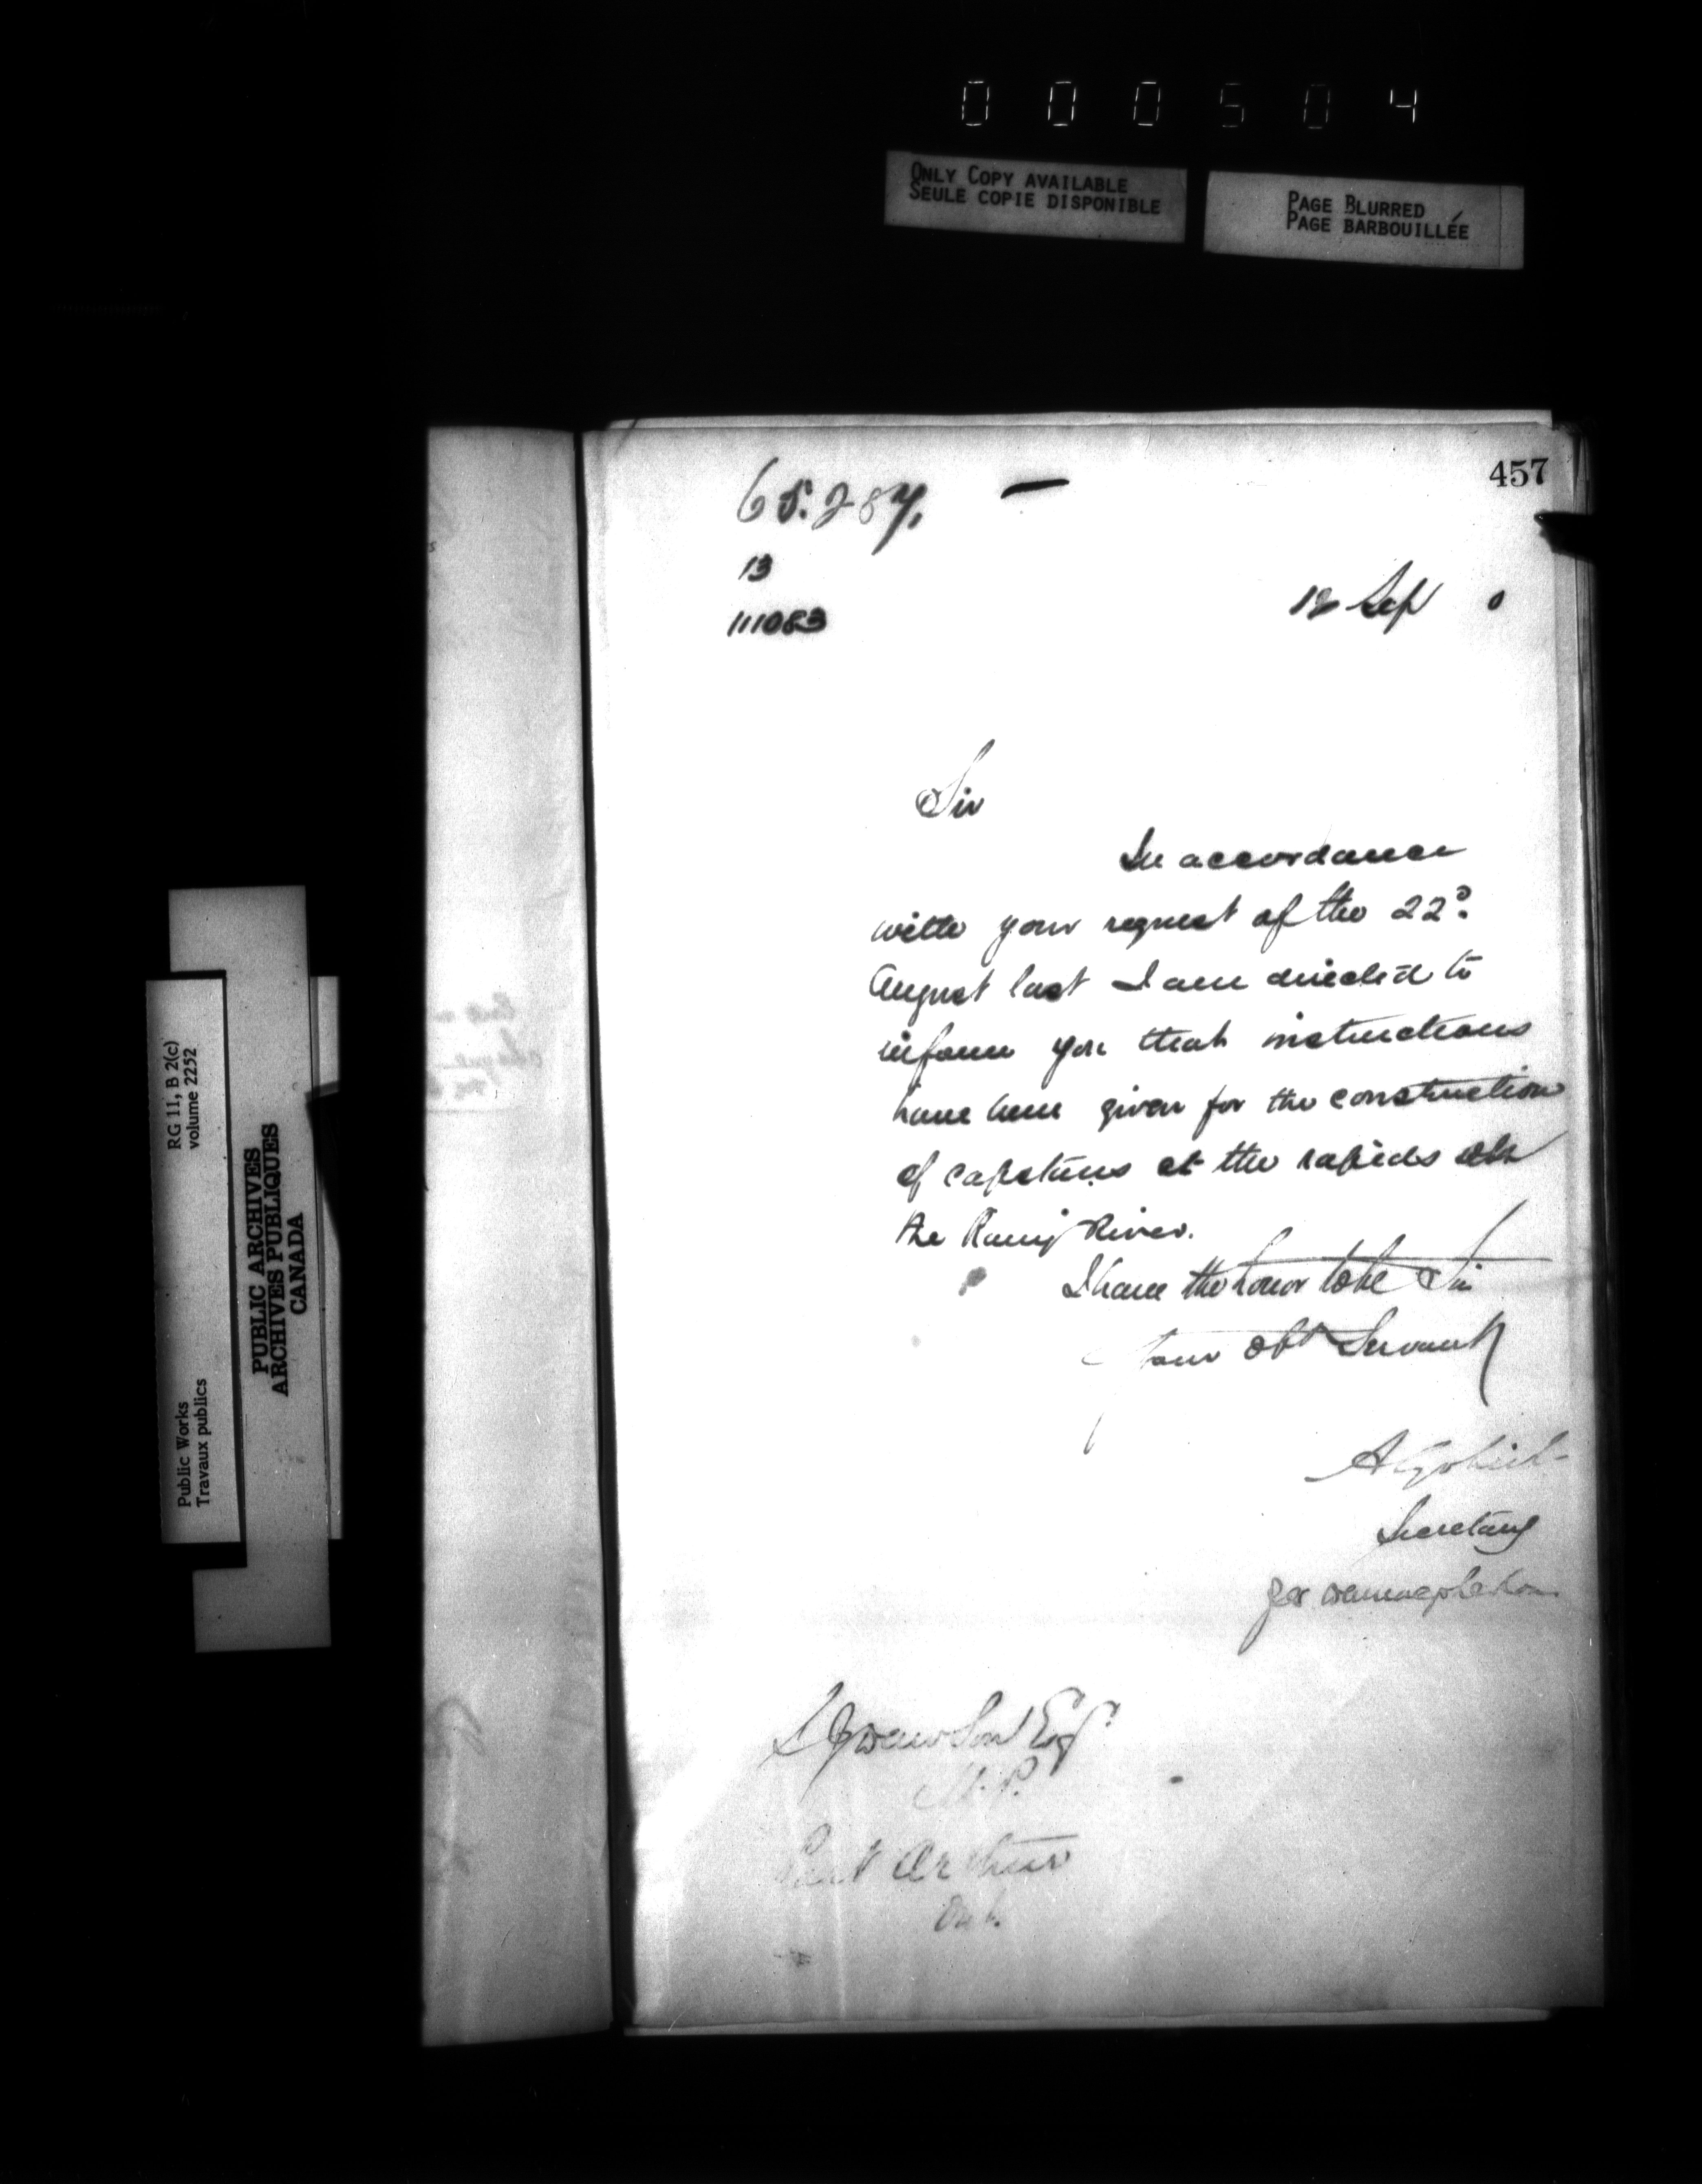 000504
ONLY COPY AVAILABLE
SEULE COPIE DISPONIBLE
PAGE BLURRED
PAGE BARBOUILLÉE
457
65.287.
13
111083
Sep 0
Sir
In accordance
with your request of the 22d.
August last I am directed to
inform you that instructions
have been given for the construction
of capstans at the rapids on
the Rainy River.
I have the honor to be Sir
Your Obt Servant
A Gobeil
Secretary
S J Dawson Esq.
M.P.
Port Arthur
Ont.
RG 11, B 2(c)
volume 2252
Public Works
Travaux publics
PUBLIC ARCHIVES
ARCHIVES PUBLIQUES
CANADA